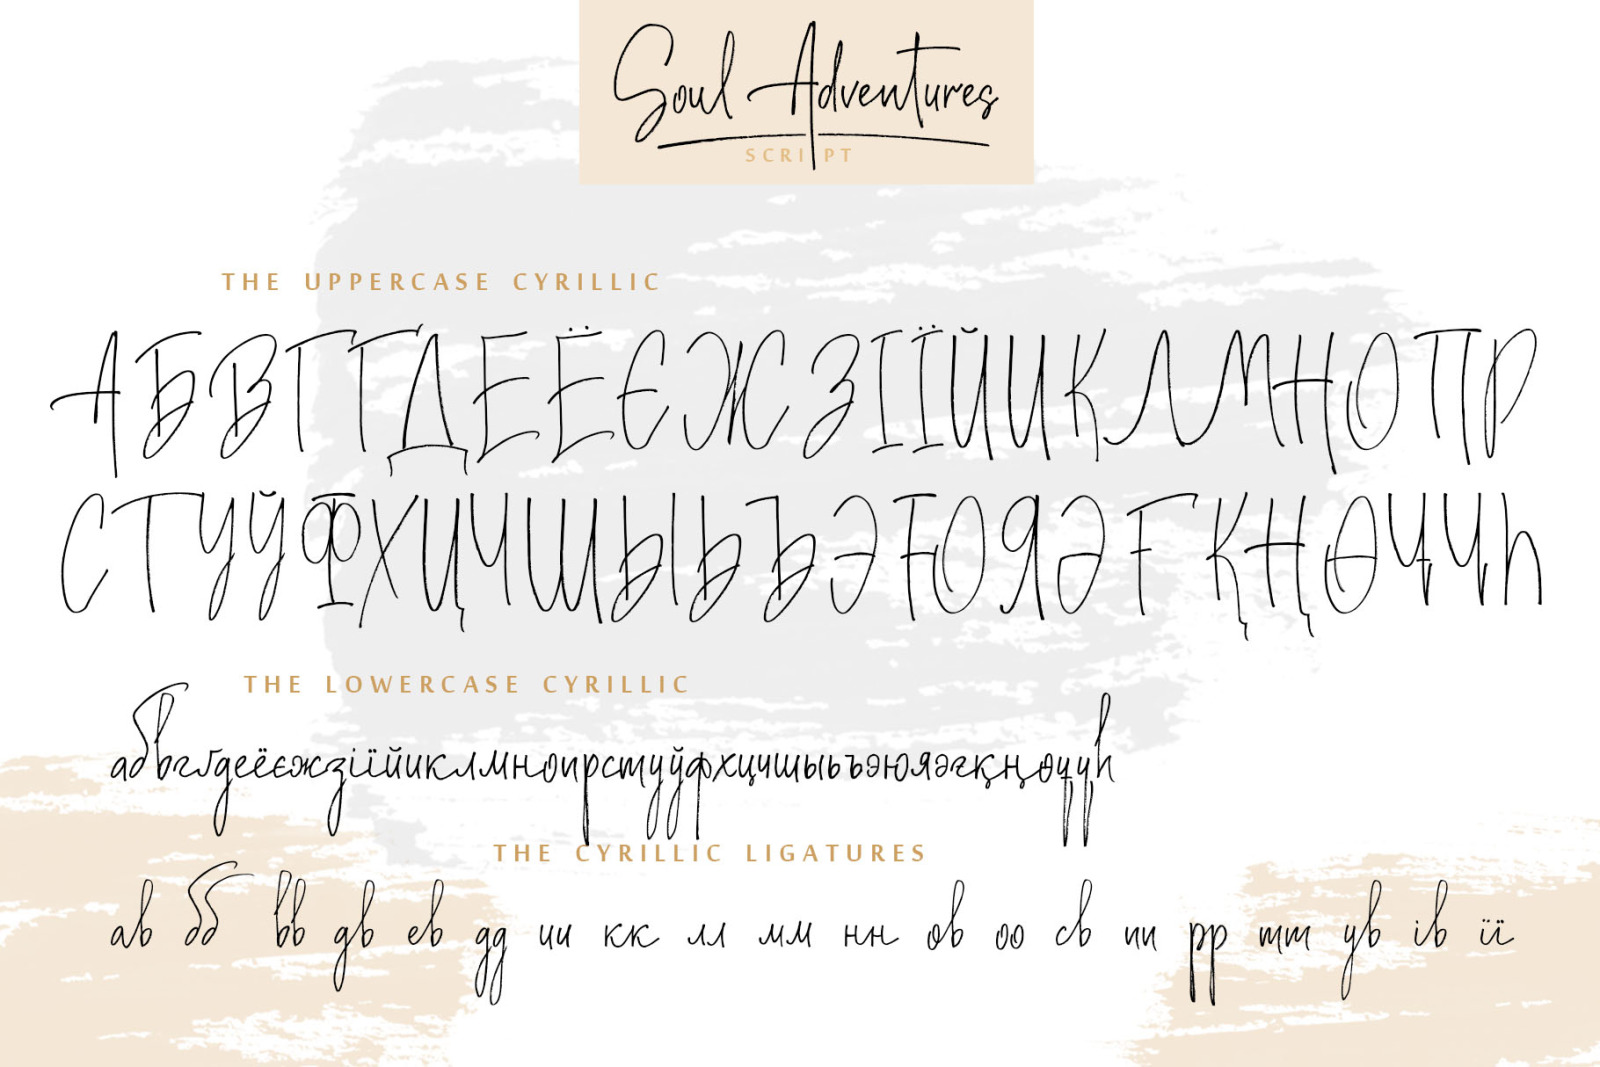 Soul Adventures
SCRIPT
THE UPPERCASE CYRILLIC
АБВГҐДЕЁЄЖЗІЇЙИКЛМНОПР
СТУЎФХЦЧШЫЬЪЭЮЯӘҒҚҢӨҶҶҺ
THE LOWERCASE CYRILLIC
абвгґдеёєжзіїйиклмнопрстуўфхцчшыьъэюяәғқңөүұһ
THE CYRILLIC LIGATURES
ав бб вв дв ев дд ии кк лл мм нн ов оо св пп рр тт ув ів її